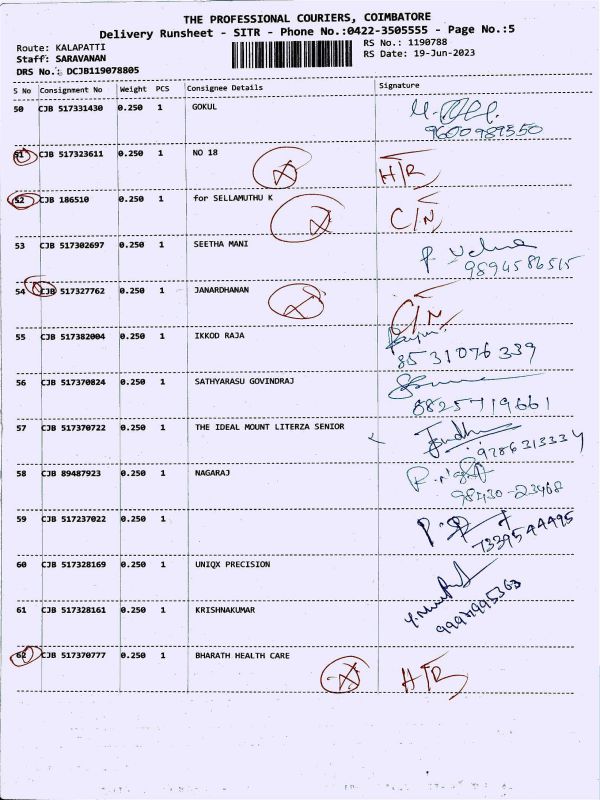 THE PROFESSIONAL COURIERS, COIMBATORE
Delivery Runsheet - SITR - Phone No.:0422-3505555 - Page No.:5
Route: KALAPATTI RS No.: 1190788
Staff: SARAVANAN RS Date: 19-Jun-2023
DRS No.: DCJB119078805
S No Consignment No Weight PCS Consignee Details Signature
50 CJB 517331430 0.250 1 GOKUL
9600989550
51 CJB 517323611 0.250 1 NO 18 H/R
52 CJB 186510 0.250 1 for SELLAMUTHU K C/N
53 CJB 517302697 0.250 1 SEETHA MANI
9894586515
54 CJB 517327762 0.250 1 JANARDHANAN C/N
55 CJB 517382004 0.250 1 IKKOD RAJA
8531076339
56 CJB 517370824 0.250 1 SATHYARASU GOVINDRAJ
8825719661
57 CJB 517370722 0.250 1 THE IDEAL MOUNT LITERZA SENIOR
9786313334
58 CJB 89487923 0.250 1 NAGARAJ
98430-23468
59 CJB 517237022 0.250 1
7339544495
60 CJB 517328169 0.250 1 UNIQX PRECISION
61 CJB 517328161 0.250 1 KRISHNAKUMAR
62 CJB 517370777 0.250 1 BHARATH HEALTH CARE H/R